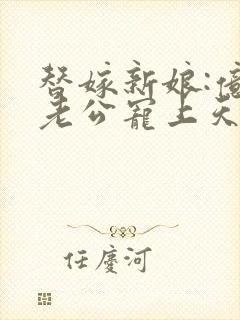 替嫁新娘:
老公寵上天
任慶河